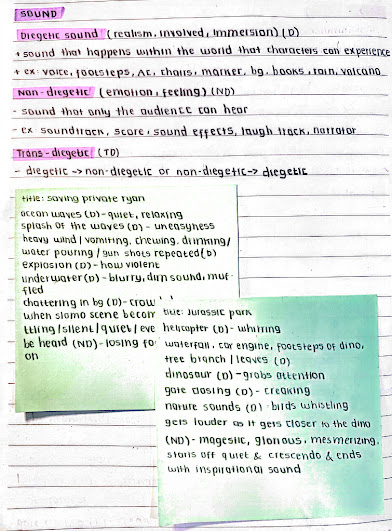 SOUND
Diegetic sound (realism, involved, immersion) (D)
+ sound that happens within the world that characters can experience
+ ex: voice, footsteps, AC, chairs, marker, bg, books, rain, volcano
Non-diegetic (emotion, feeling) (ND)
- sound that only the audience can hear
- ex: soundtrack, score, sound effects, laugh track, narrator
Trans-diegetic (TD)
- diegetic -> non-diegetic or non-diegetic -> diegetic
title: saving private ryan
ocean waves (D) - quiet, relaxing
splash of the waves (D) - uneasyness
heavy wind / vomiting, chewing, drinking/
water pouring / gun shots repeated (D)
explosion (D) - how violent
underwater (D) - blurry, dim sound, muf-
fled
chattering in bg (D) - crow
when slomo scene becom
ttling/silent/quiet/eve
be heard (ND) - losing fo
on
title: Jurassic park
helicopter (D) - whirring
waterfall, car engine, footsteps of dino,
tree branch / leaves (D)
dinosaur (D) - grabs attention
gate closing (D) - creaking
nature sounds (D) - birds whistling
gets louder as it gets closer to the dino
(ND) - magestic, glorious, mesmerizing,
starts off quiet & crescendo & ends
with inspirational sound